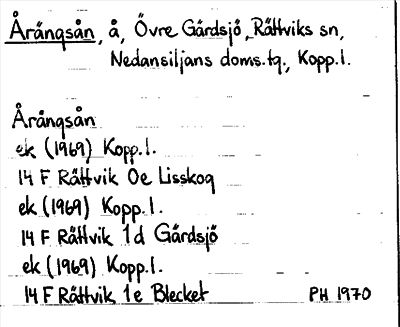 Årängsån, å, Övre Gärdsjö, Rättviks sn,
Nedansiljans doms.tg., Kopp.l.
Årängsån
ek (1969) Kopp.l.
14 F Rättvik 0e Lisskog
ek (1969) Kopp.l.
14 F Rättvik 1d Gärdsjö
ek (1969) Kopp.l.
14 F Rättvik 1e Blecket PH 1970